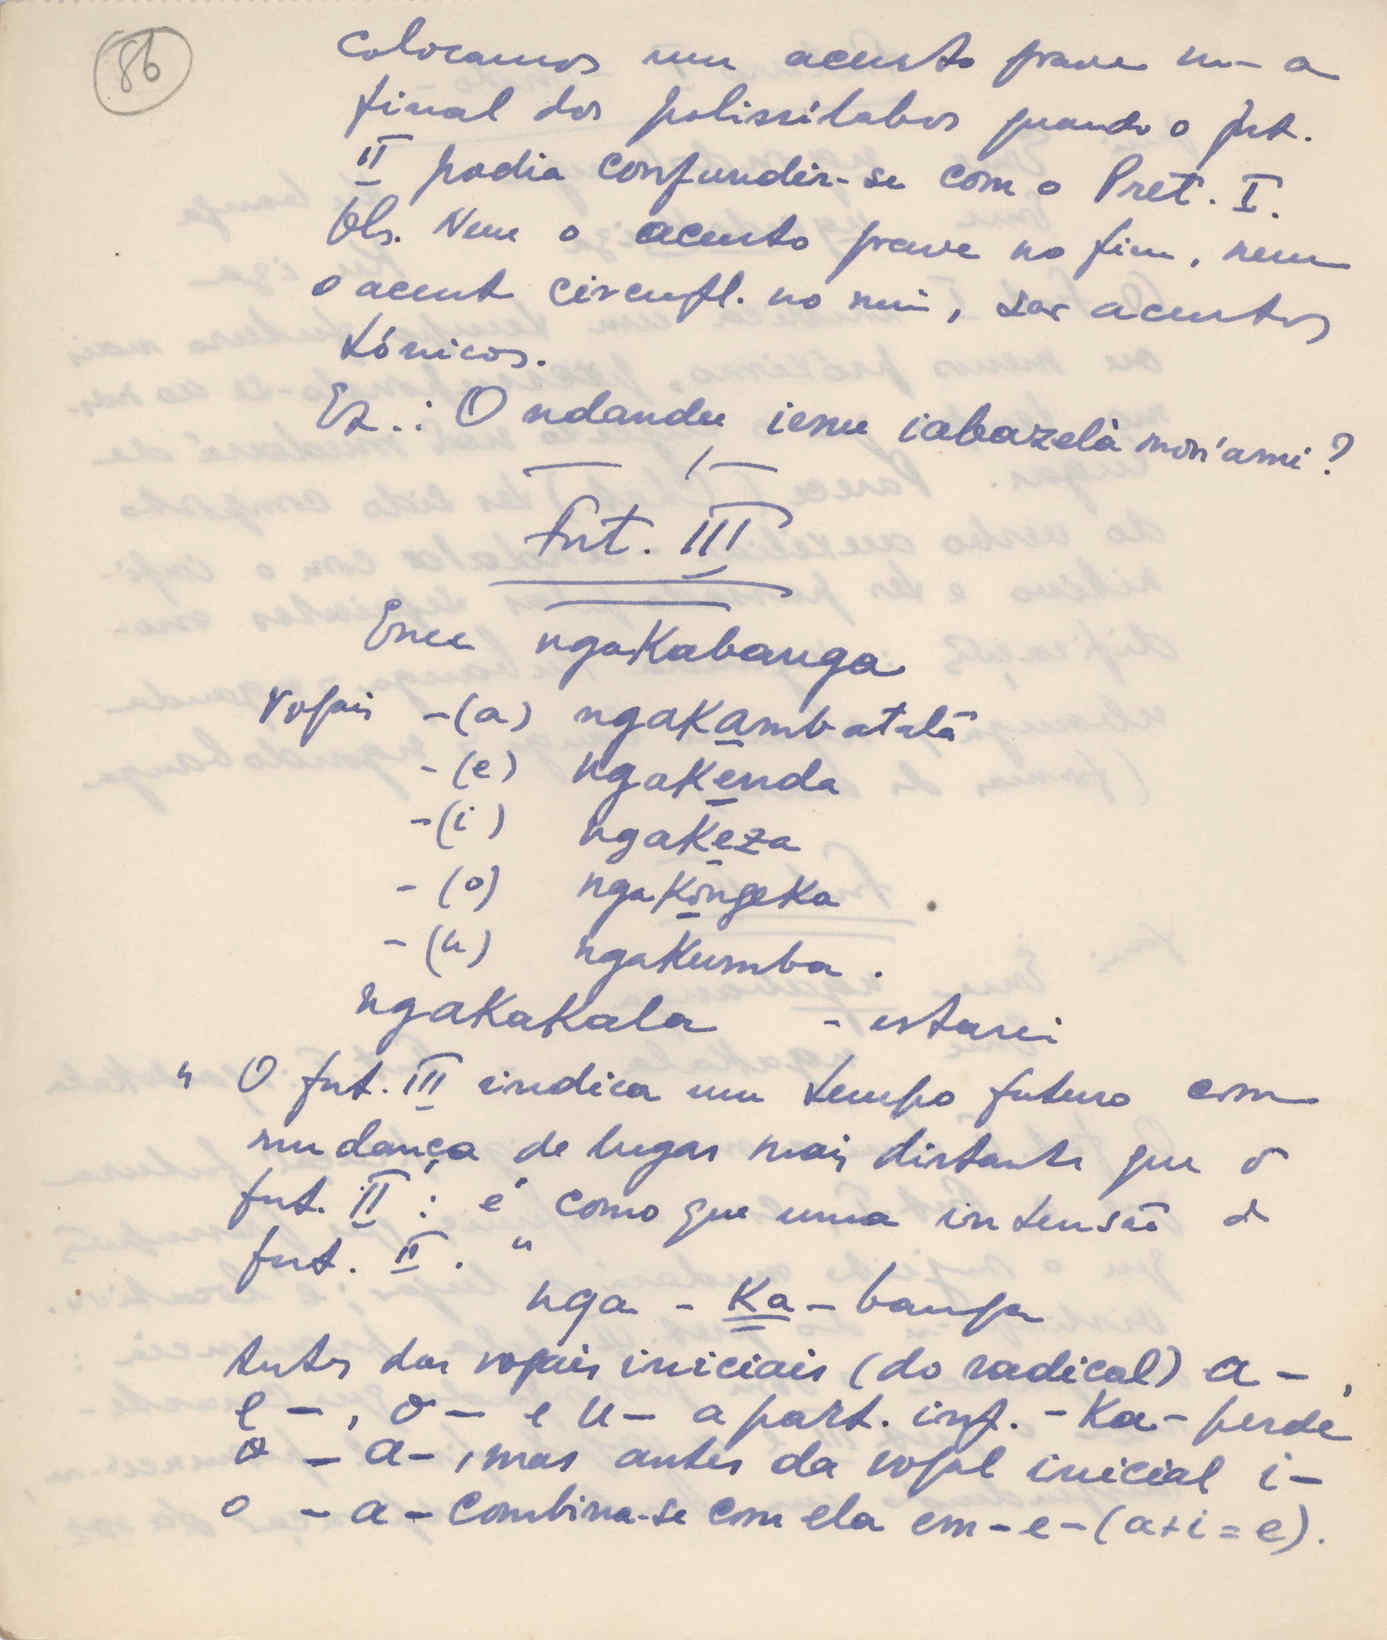 86
colocamos um acento grave no a
final dos polissílabos quando o fut.
II podia confundir-se com o Pret. I.
Obs. Nem o acento grave no fim, nem
o acent circunfl. no mui, são acentos
tónicos.
Ex.: O ndandu ienu iabazelà mon'ami?
Fut. III
Eme ngakabanga
vogais -(a) ngakambatelà
-(e) ngakenda
-(i) ngakeza
-(o) ngakongeka
-(u) ngakumba.
ngakakala - estarei
" O fut. III indica um tempo futuro com
mudança de lugar mais distante que o
fut. II; é como que uma intensão do
fut. II. "
nga - ka - banga
Antes das vogais iniciais (do radical) a-,
e-, o- e u- a part. inf. -ka- perde
o -a-, mas antes da vogal inicial i-
o -a- combina-se com ela em -e- (a+i=e).